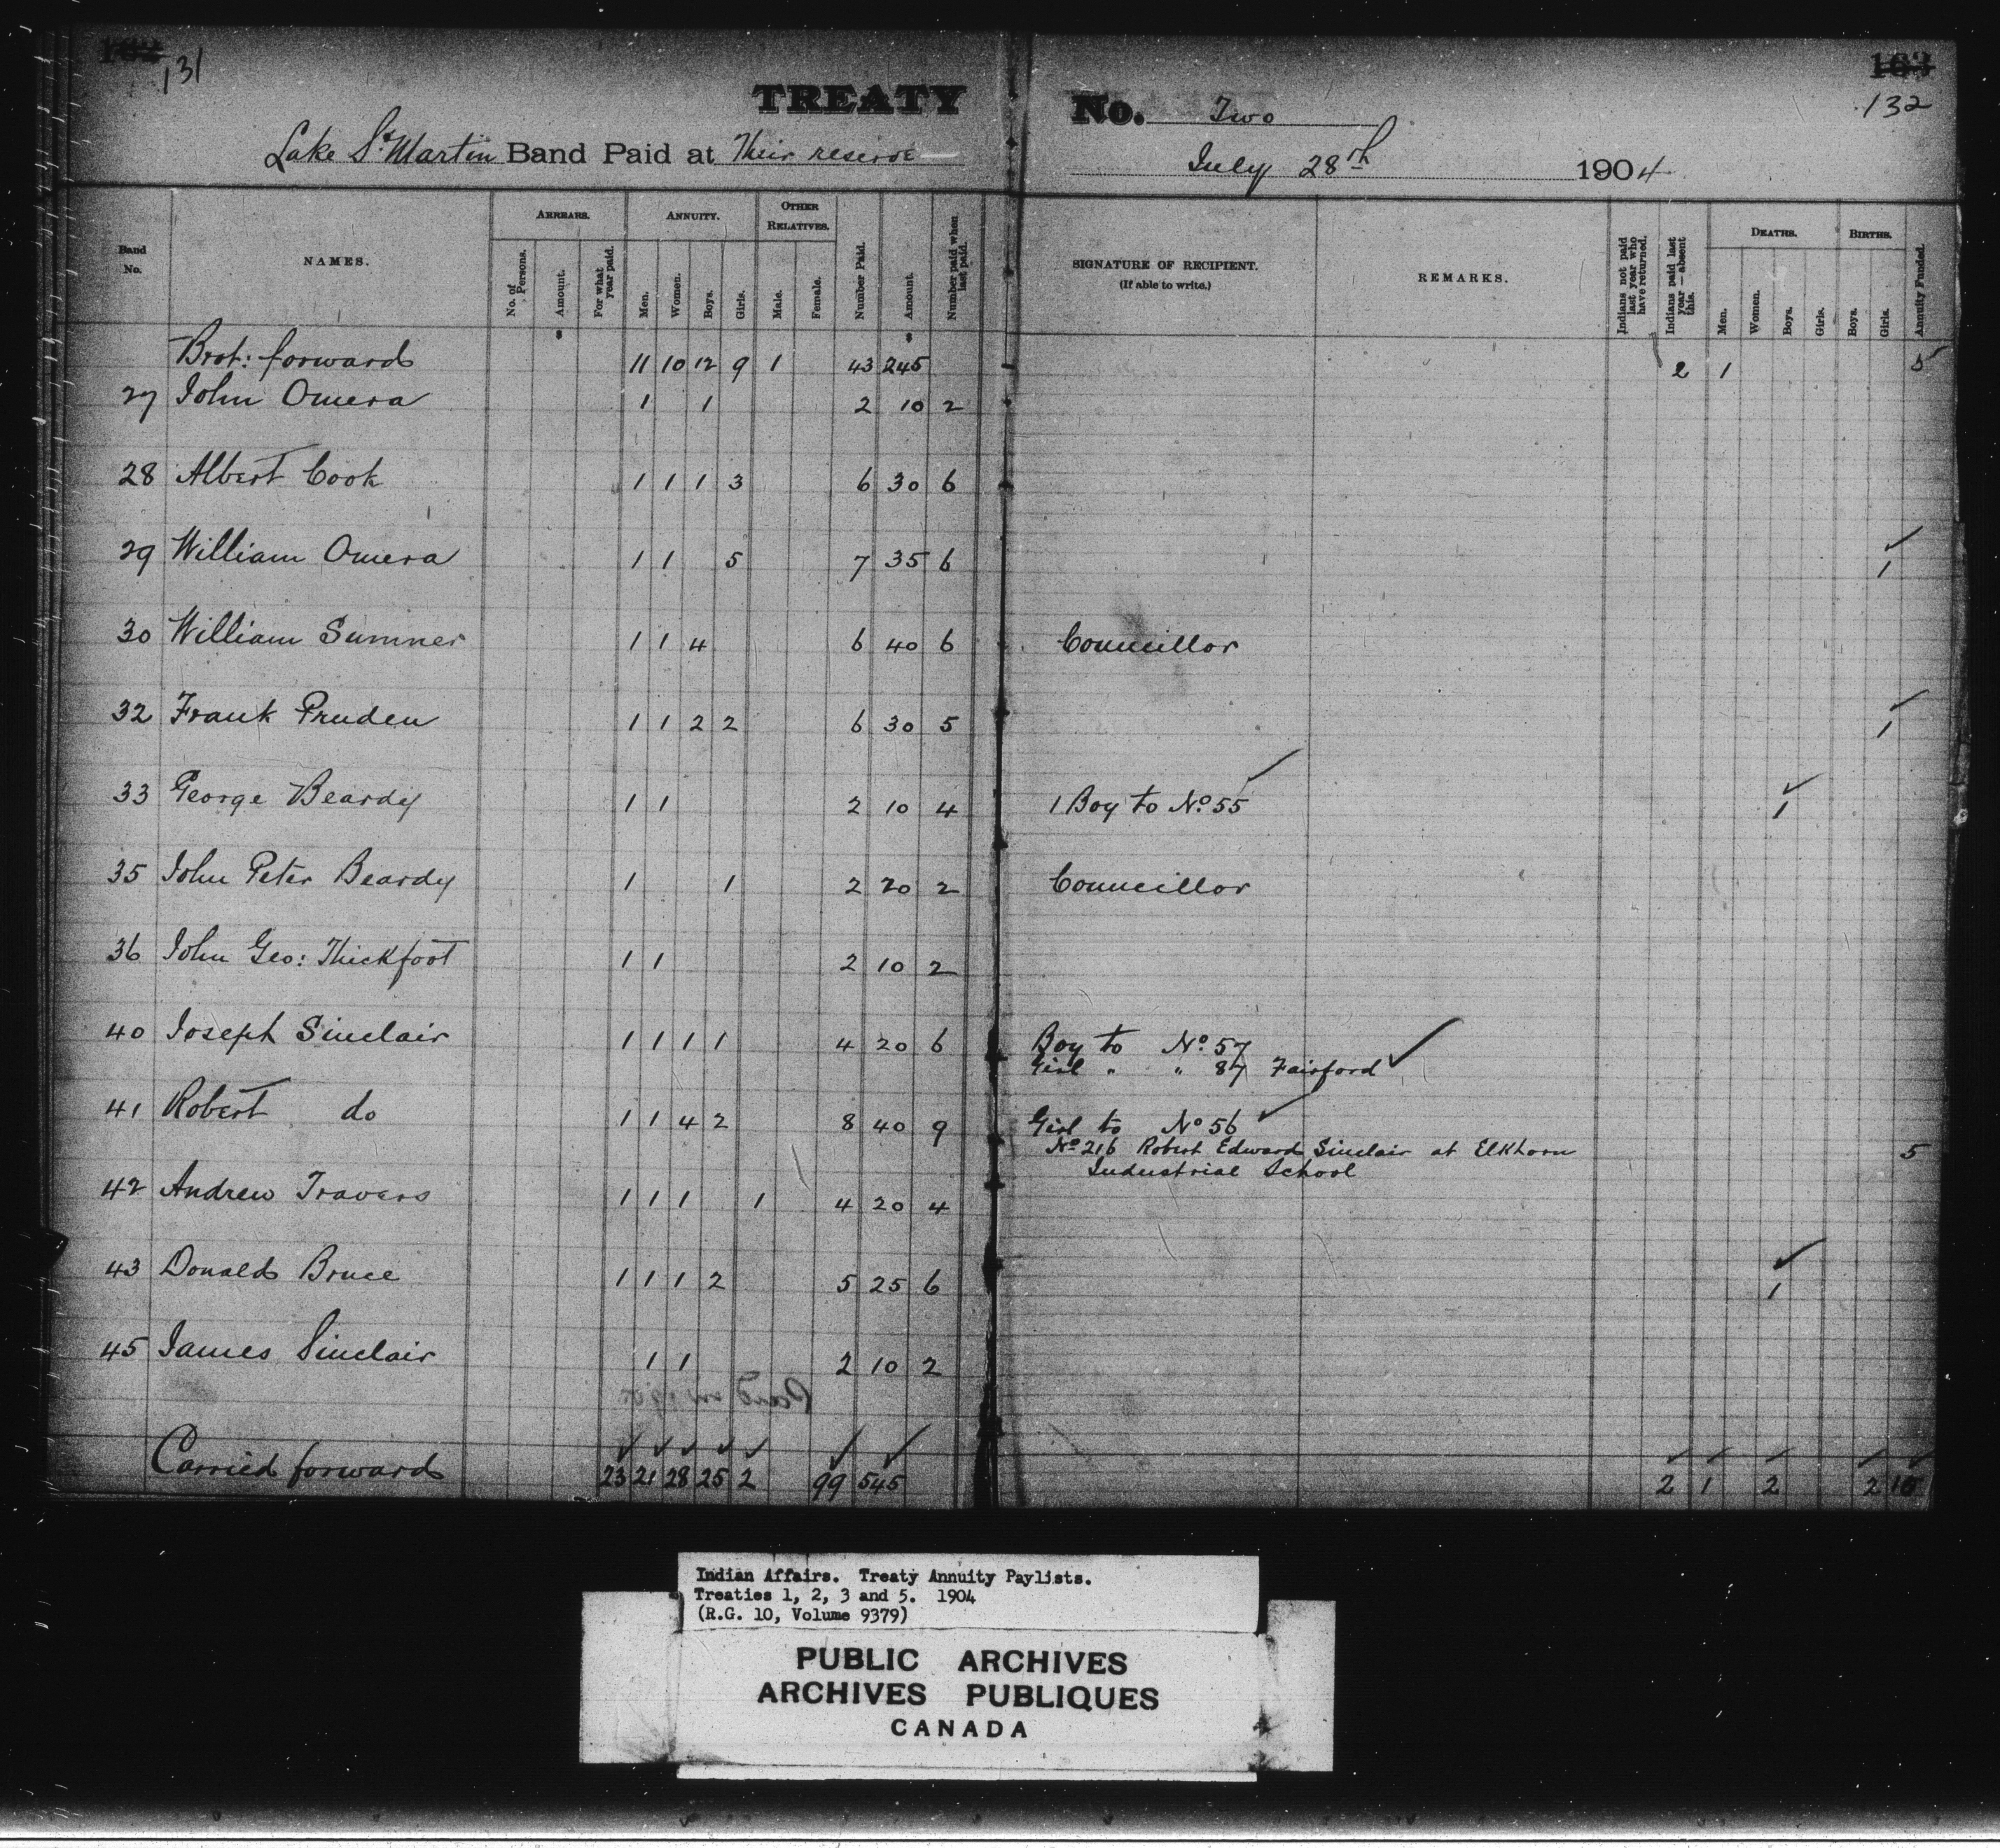 131
132
TREATY No. Two
Lake St. Martin Band Paid at Their reserve July 28th 1904
Band No.
NAMES.
ARREARS.
No. of Persons.
Amount.
For what year paid.
ANNUITY.
Men.
Women.
Boys.
Girls.
OTHER RELATIVES.
Male.
Female.
Number Paid.
Amount.
Number paid when last paid.
SIGNATURE OF RECIPIENT.
(If able to write.)
REMARKS.
Indians not paid last year who have returned.
Indians paid last year—absent this.
DEATHS.
Men.
Women.
Boys.
Girls.
BIRTHS.
Boys.
Girls.
Annuity Funded.
$ $
Brot: forward 11 10 12 9 1 43 245 2 1 5
27 John Omera 1 1 2 10 2
28 Albert Cook 1 1 1 3 6 30 6
29 William Omera 1 1 5 7 35 6 1
30 William Sumner 1 1 4 6 40 6 Councillor
32 Frank Pruden 1 1 2 2 6 30 5 1
33 George Beardy 1 1 2 10 4 1 Boy to No. 55 1
35 John Peter Beardy 1 1 2 20 2 Councillor
36 John Geo: Thickfoot 1 1 2 10 2
40 Joseph Sinclair 1 1 1 1 4 20 6 Boy to No. 57
Girl " " 87 Fairford
41 Robert do 1 1 4 2 8 40 9 Girl to No 56
No 216 Robert Edward Sinclair at Elkhorn 5
Industrial School
42 Andrew Travers 1 1 1 1 4 20 4
43 Donald Bruce 1 1 1 2 5 25 6 1
45 James Sinclair 1 1 2 10 2
Carried forward 23 21 28 25 2 99 545 2 1 2 2 10
Indian Affairs. Treaty Annuity Paylists.
Treaties 1, 2, 3 and 5. 1904
(R.G. 10, Volume 9379)
PUBLIC ARCHIVES
ARCHIVES PUBLIQUES
CANADA